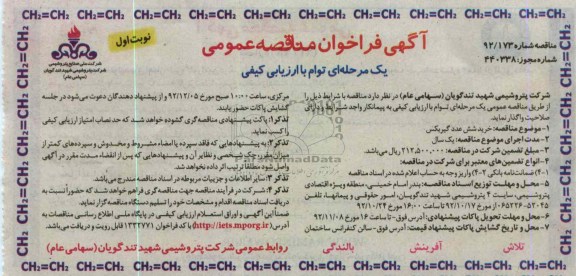 CH2=CH2 CH2=CH2 CH2=CH2 CH2=CH2 CH2=CH2 CH2=CH2 CH2=CH2 CH2=CH2
مناقصه شماره ۹۲/۱۷۳
شماره مجوز: ۴۴۰۳۳۸
آگهی فراخوان مناقصه عمومی
یک مرحله‌ای توام با ارزیابی کیفی
نوبت اول
شرکت ملی صنایع پتروشیمی
شرکت پتروشیمی شهید تندگویان
(سهامی عام)
شرکت پتروشیمی شهید تندگویان (سهامی عام) در نظر دارد مناقصه با شرایط ذیل را
از طریق مناقصه عمومی یک مرحله‌ای توام با ارزیابی کیفی به پیمانکار واجد شرایط و دارای
صلاحیت واگذار نماید.
۱- موضوع مناقصه: خرید شش عدد گیربکس
۲- مدت اجرای موضوع مناقصه: یک سال
۳- مبلغ تضمین شرکت در مناقصه: ۲۱۲,۵۰۰,۰۰۰ ریال می‌باشد.
۴- انواع تضمین‌های معتبر برای شرکت در مناقصه:
۱) ضمانت‌نامه بانکی ۲) واریز وجه به حساب اعلام شده در اسناد مناقصه
۵- محل و مهلت توزیع اسناد مناقصه: بندر امام خمینی، منطقه ویژه اقتصادی
پتروشیمی، سایت ۴ پتروشیمی شهید تندگویان، امور حقوقی و پیمانها، تلفن
۰۶۵۲۲۶ از ۹۲/۱۰/۱۷ تا ساعت ۱۶:۰۰ مورخ ۹۲/۱۰/۲۴
۶- محل و مهلت تحویل پاکات پیشنهادی: آدرس فوق - تا ساعت ۱۶ مورخ ۹۲/۱۱/۰۸
۷- محل و تاریخ گشایش پاکات پیشنهاد قیمت: آدرس فوق - سالن کنفرانس ساختمان
مرکزی، ساعت ۱۰:۰۰ صبح مورخ ۹۲/۱۲/۰۵ و از پیشنهاد دهندگان دعوت می‌شود در جلسه
گشایش پاکات حضور یابند.
تذکر ۱: پاکت پیشنهادی مناقصه‌گری گشوده خواهد شد که حد نصاب امتیاز ارزیابی کیفی
را کسب نماید.
تذکر ۲: به پیشنهادهایی که فاقد سپرده یا امضاء مشروط و مخدوش و سپرده‌های کمتر از
میزان مقرر، چک شخصی و نظایر آن و پیشنهادهایی که پس از انقضاء مدت مقرر در آگهی
واصل شود مطلقاً ترتیب اثر داده نخواهد شد.
تذکر ۳: سایر اطلاعات و جزییات مربوطه در اسناد مناقصه مندرج می‌باشد.
تذکر ۴: شرکت در فرآیند مناقصه جهت مناقصه‌گری فراهم خواهد شد که حضوراً نسبت به
دریافت اسناد مناقصه اقدام و مشخصات خود را تسلیم دستگاه مناقصه‌گزار نماید.
ضمناً این آگهی و اوراق استعلام ارزیابی کیفی در پایگاه ملی اطلاع رسانی مناقصات به
آدرس (http://iets.mporg.ir) با کد فراخوان ۱۳۳۲۷۷۱ قابل رویت و دریافت می‌باشد.
تلاش آفرینش بالندگی
روابط عمومی شرکت پتروشیمی شهید تندگویان (سهامی عام)
CH2=CH2 CH2=CH2 CH2=CH2 CH2=CH2 CH2=CH2 CH2=CH2 CH2=CH2 CH2=CH2